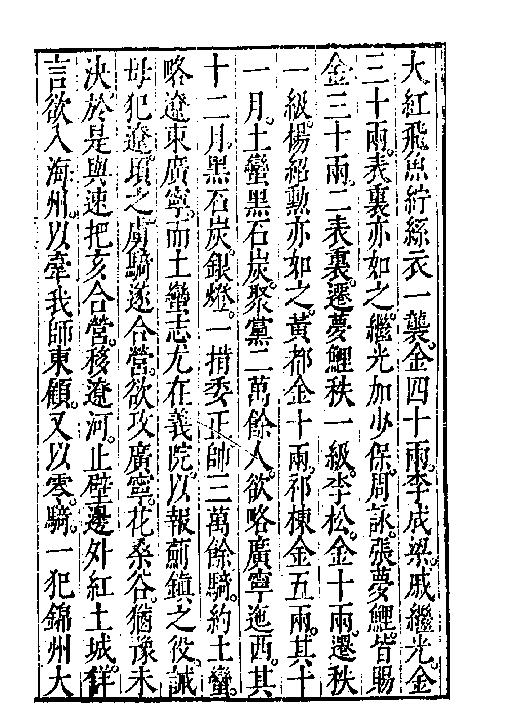 大紅飛魚紵絲衣一襲。金四十兩。李成梁。戚繼光。金
三十兩。表裏亦如之。繼光加少保。周詠。張夢鯉。皆賜
金三十兩。二表裏。遷夢鯉秩一級。李松。金十兩。遷秩
一級。楊紹勳亦如之。黃都金十兩。祁棟金五兩。其十
一月。土蠻黑石炭。聚黨二萬餘人。欲略廣寧迤西。其
十二月。黑石炭。銀燈。一措委正師三萬餘騎。約土蠻。
略遼東廣寧。而土蠻志尤在義院。以報薊鎮之役。誡
毋犯遼。頃之虜騎遂合營。欲攻廣寧。花桑谷。猶豫未
決。於是與速把亥合營。移遼河。止壁邊外紅土城。佯
言欲入海州。以牽我師東顧。又以零騎。一犯錦州大